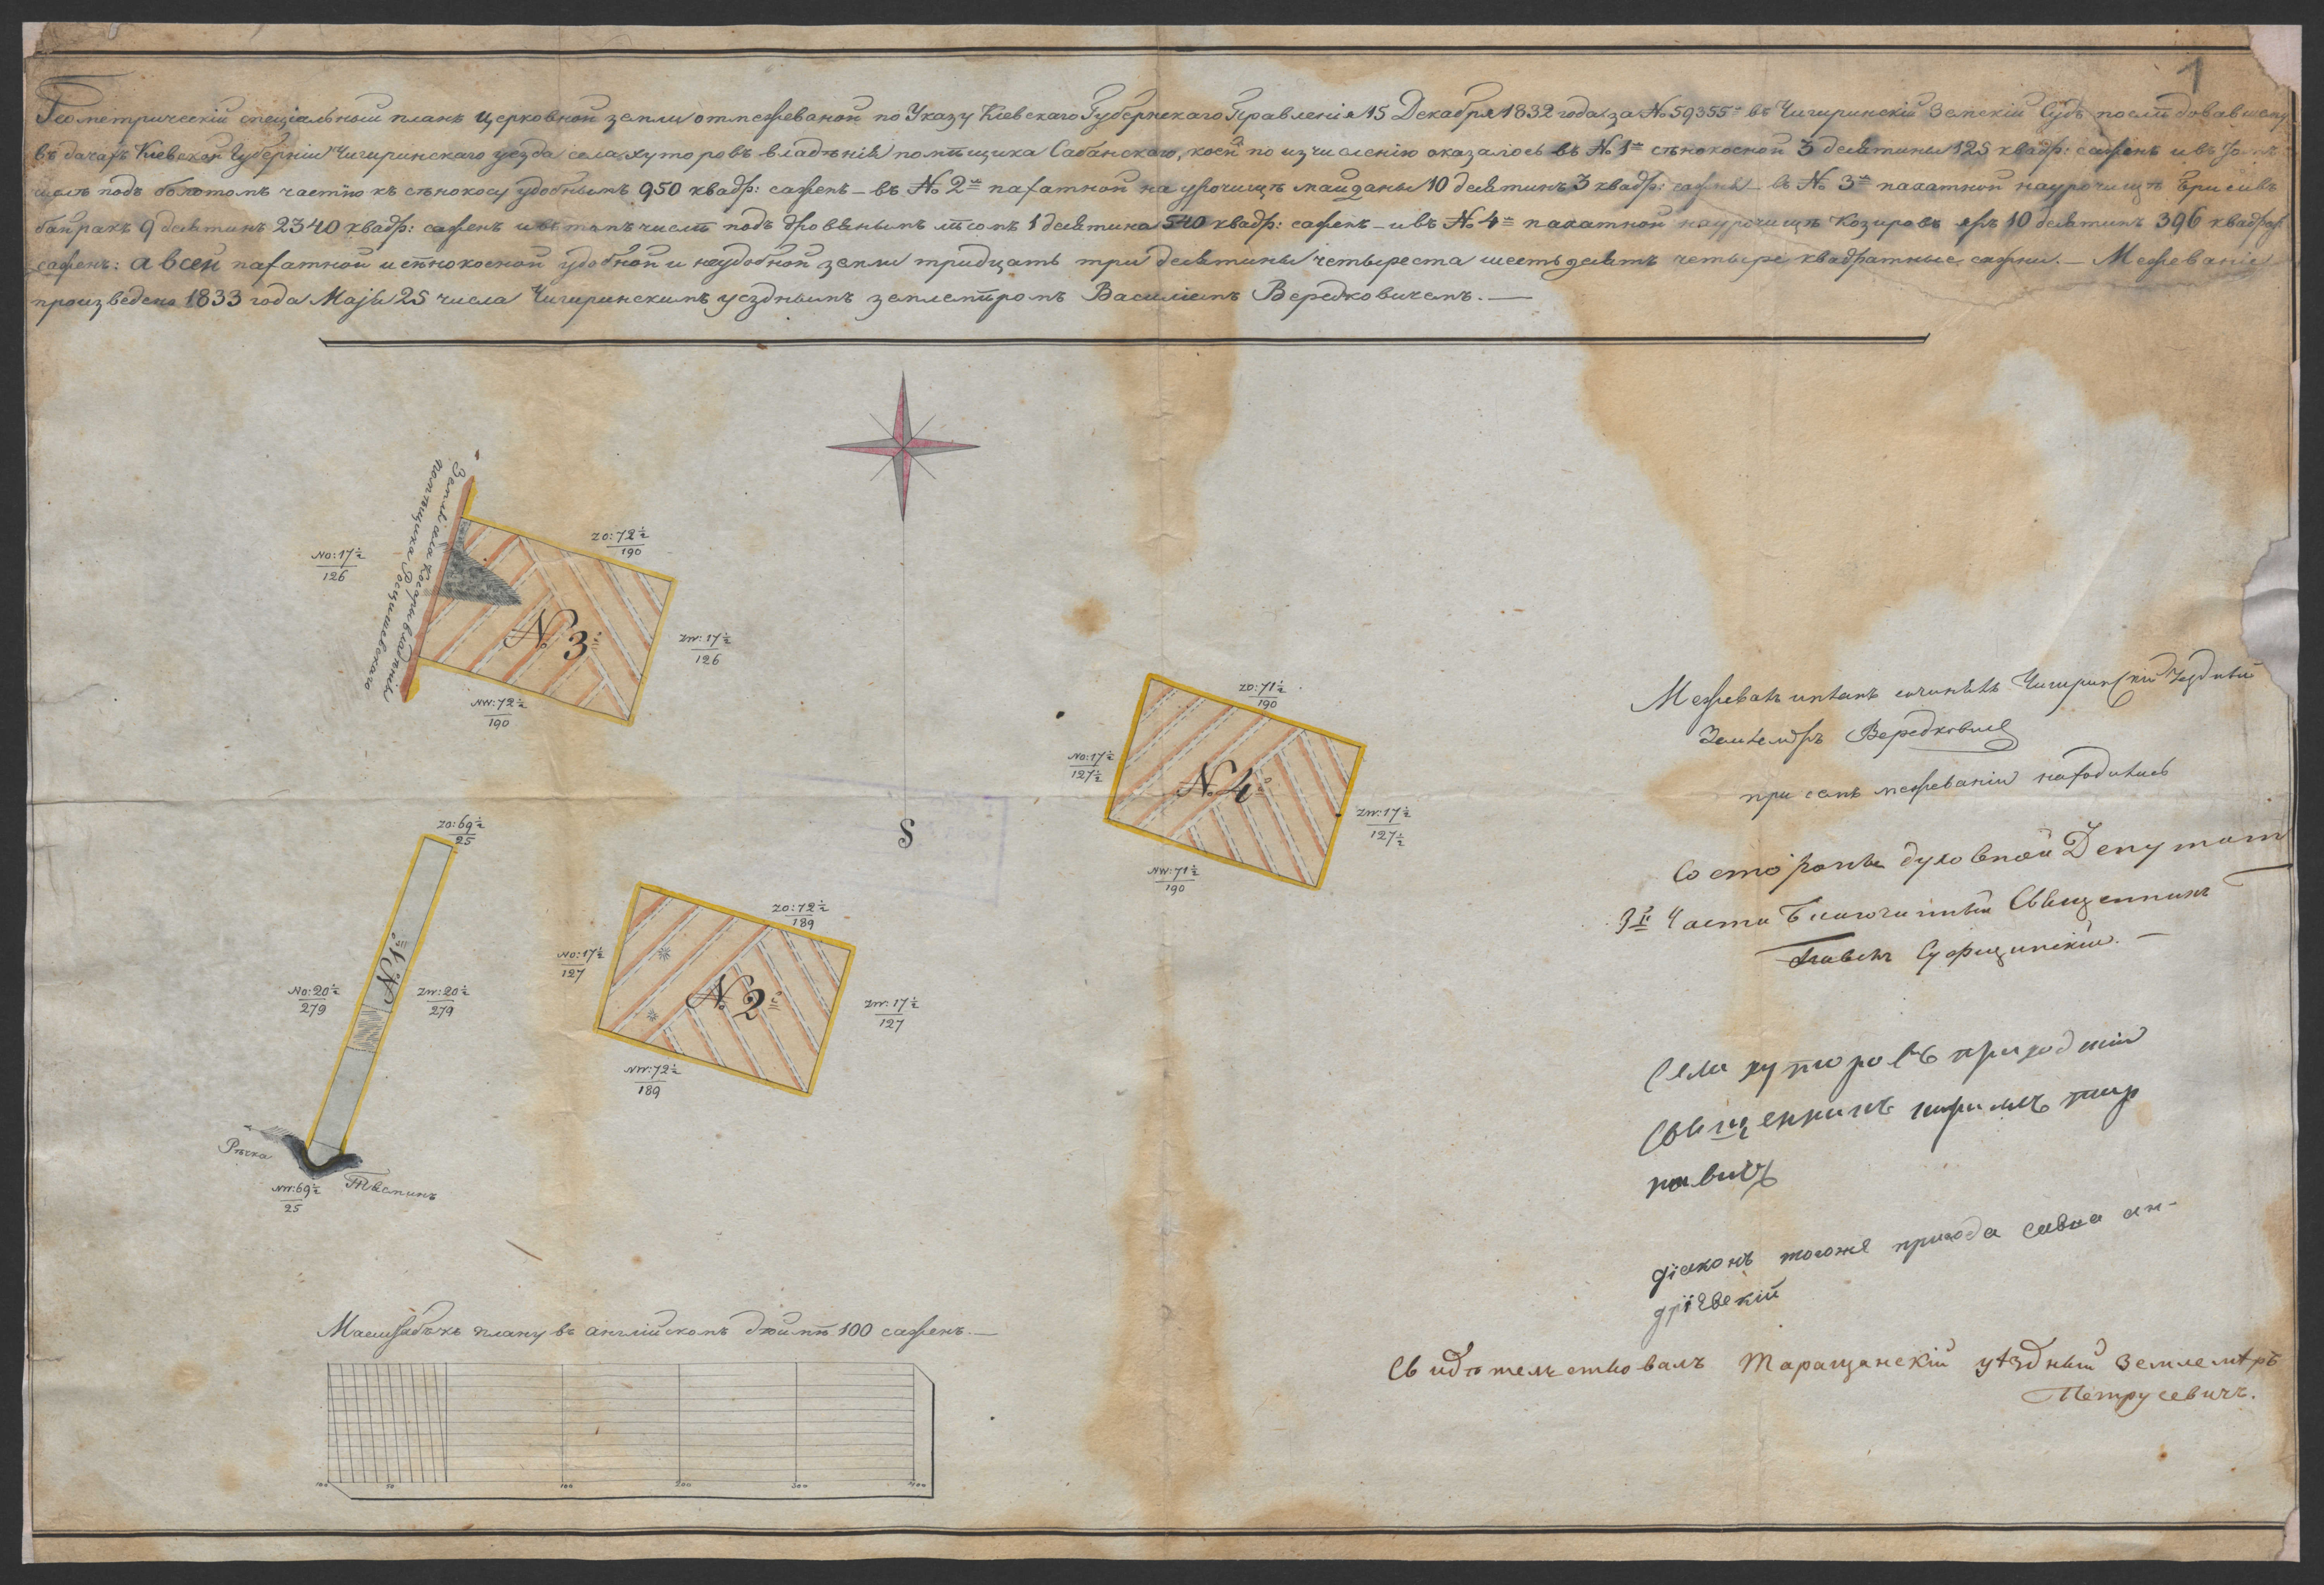 1
Геометрическій спеціальный планъ церковной земли отмежеваной по Указу Кіевскаго Губернскаго Правленія 15 Декабря 1832 года за № 59355 въ Чигиринскій Земскій Судъ последовавшему
въ дачахъ Кіевской Губерніи Чигиринскаго уезда села хуторовъ владѣнія помѣщика Сабанскаго, коей по изчисленію оказалось въ № 1 сѣнокосной 3 десятины 125 квадр: саженъ и въ томъ
числѣ подъ болотомъ частію къ сѣнокосу удобнымъ 950 квадр: саженъ – въ № 2 пахатной на урочищѣ майданы 10 десятинъ 3 квадр: сажня – въ № 3 пахатной на урочищѣ
байракъ 9 десятинъ 2340 квадр: саженъ и въ томъ числѣ подъ дровянымъ лѣсомъ 1 десятина 540 квадр: саженъ – и въ № 4 пахатной на урочищѣ Козировъ яръ 10 десятинъ 396 квадр:
саженъ: а всей пахатной и сѣнокосной удобной и неудобной земли тридцать три десятины четыреста шестьдесятъ четыре квадратные сажни. – Межеваніе
произведено 1833 года Маія 25 числа Чигиринскимъ уезднымъ землемѣромъ Василіемъ Вередковичемъ. –
Земля села Косари владѣнія
помѣщика Росцишевскаго
NO: 17½
126
ZO: 72½
190
ZW: 17½
126
NW: 72½
190
№ 3
ZO: 71½
190
NO: 17½
127½
ZW: 17½
127½
NW: 71½
190
№ 4
S
ZO: 69½
25
NO: 20½
279
ZW: 20½
279
№ 1
NW: 69½
25
Рѣчка
Тясминъ
ZO: 72½
189
NO: 17½
127
ZW: 17½
127
NW: 72½
189
№ 2
Межевалъ и планъ сочинялъ Чигиринскій Уездный
Землемѣръ Вередковичъ
при семъ межеваніи находились
Состороны духовной Депутатъ
3й Части Благочинный Священникъ
Павелъ
Села хуторовъ приходскій
Священникъ
діаконъ тогоже прихода савва ан-
дріевскій
Свидѣтельствовалъ Таращанскій уѣздный Землемѣръ
Петрусевичъ.
Масштабъ къ плану въ англійскомъ дюймѣ 100 саженъ. –
100 50 100 200 300 400